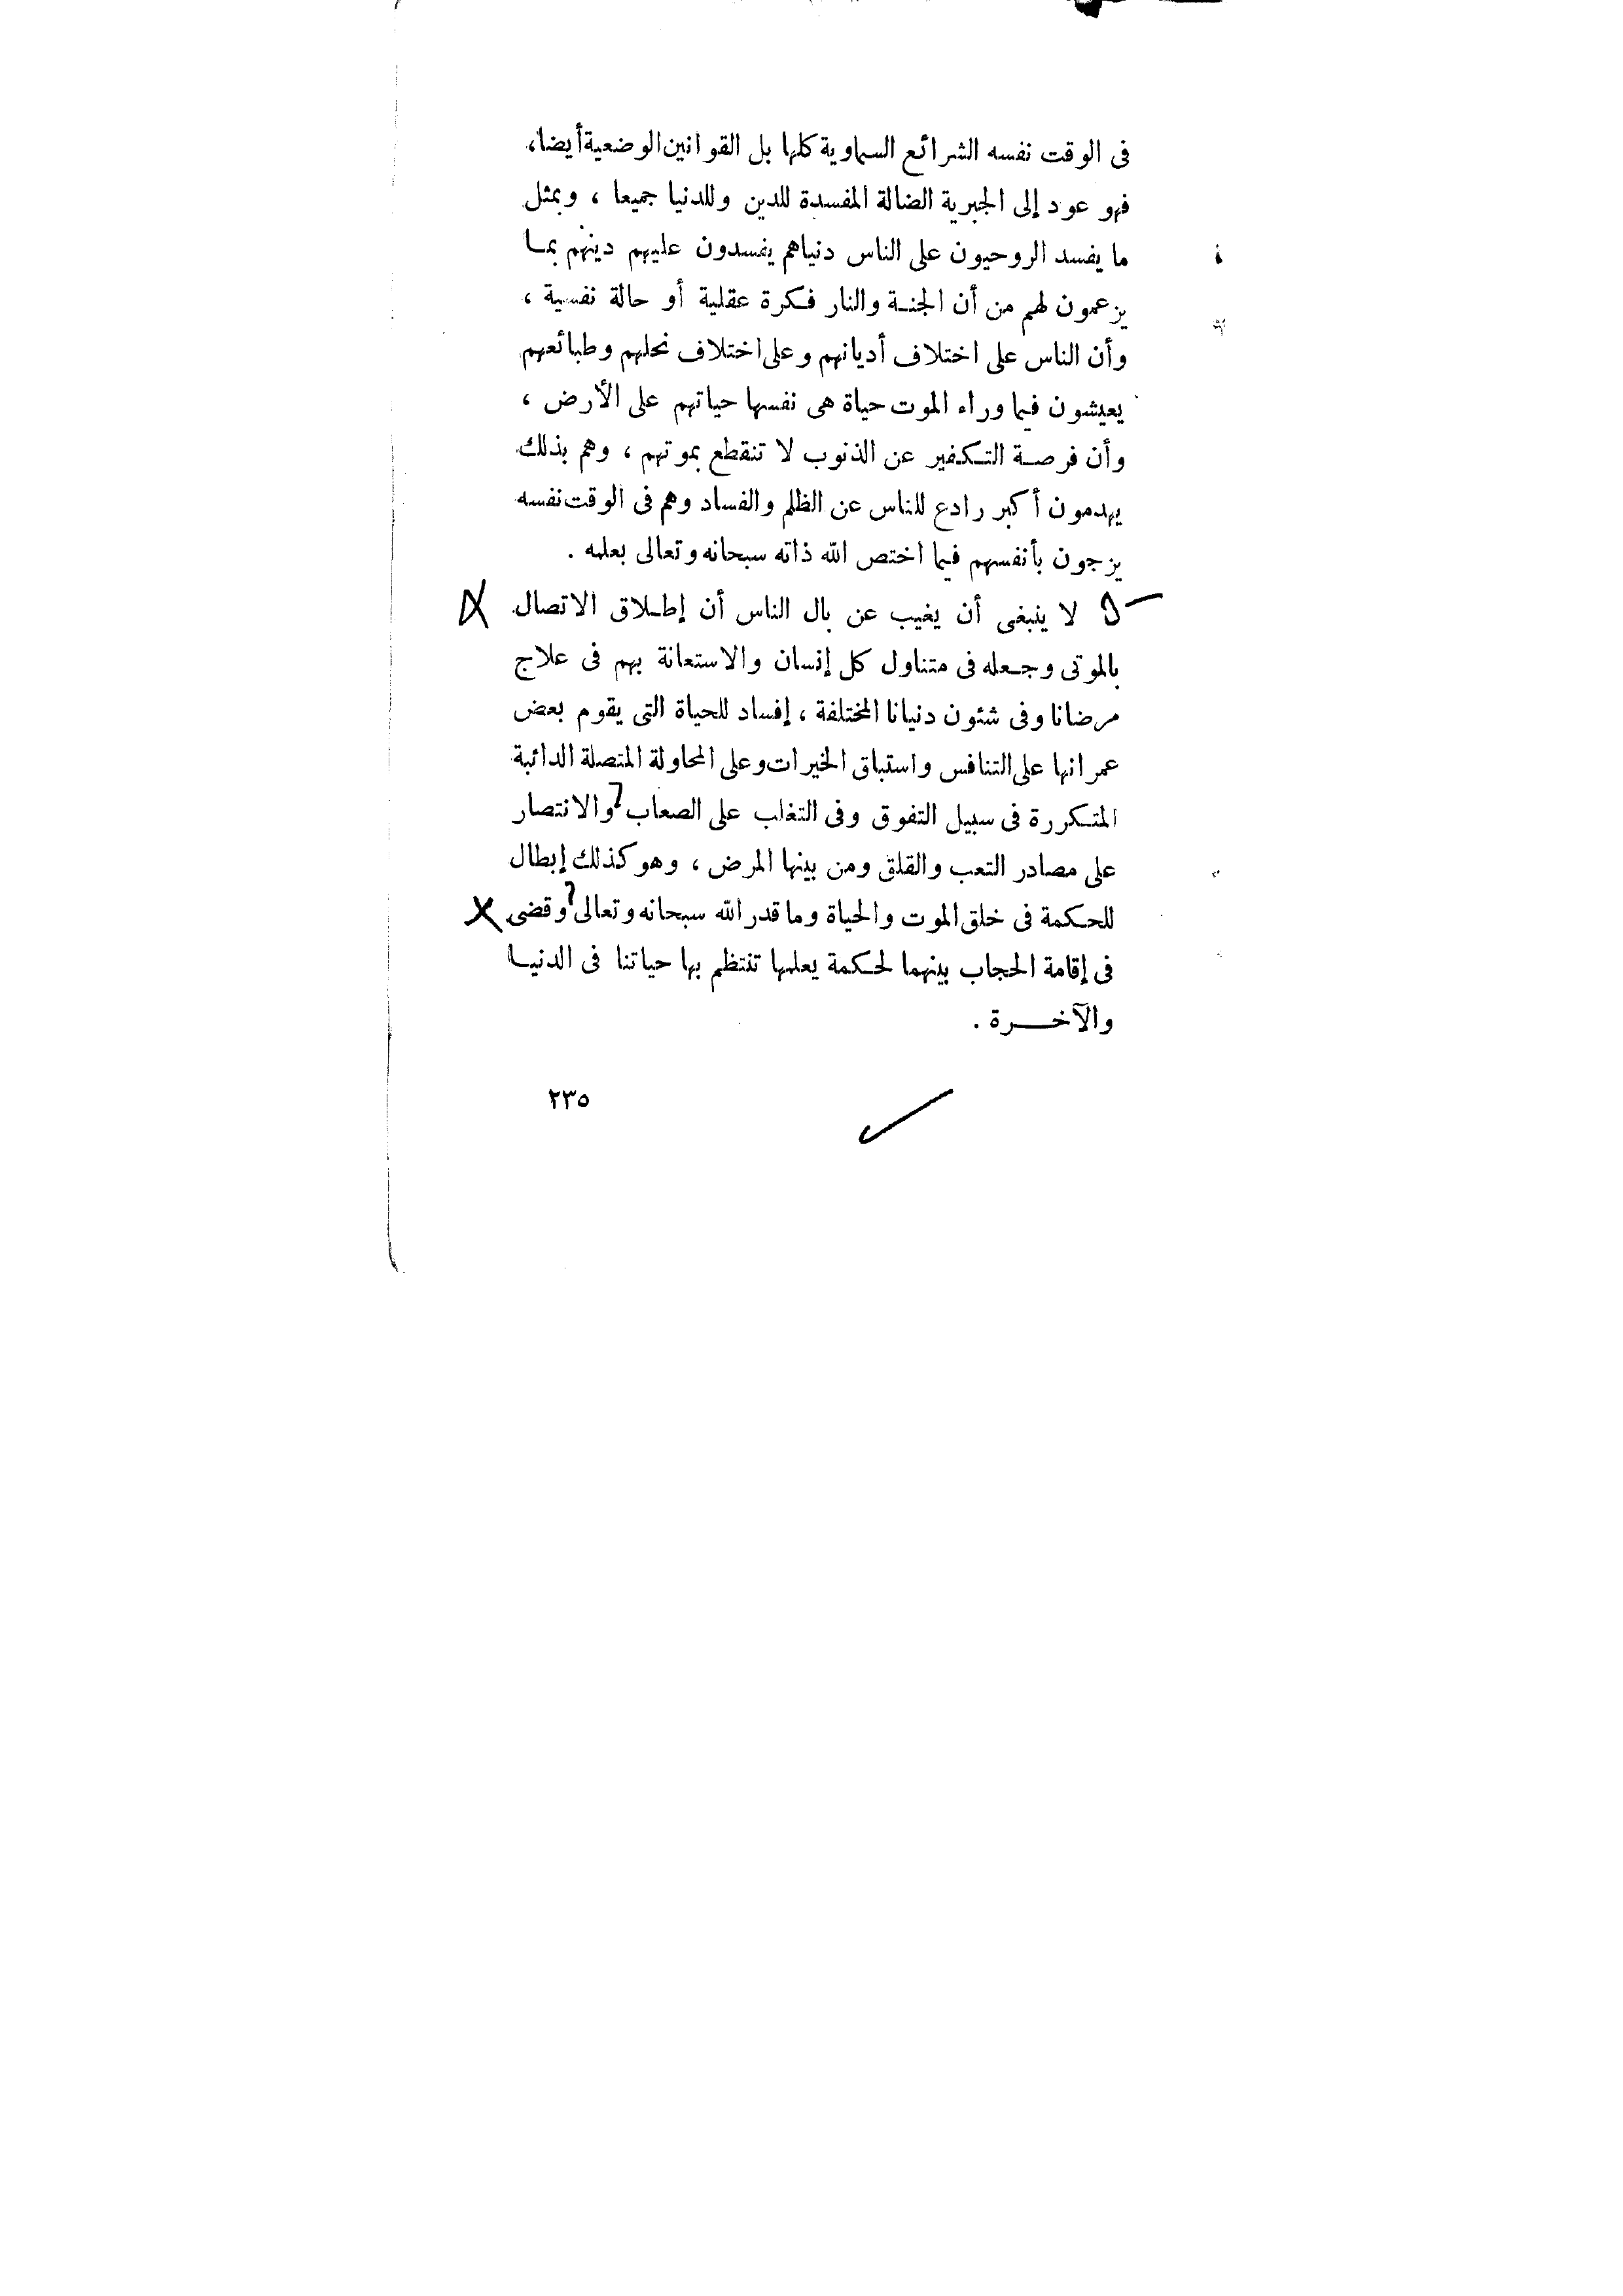 فى الوقت نفسه الشرائع السماوية كلها بل القوانين الوضعية أيضا،
فهو عود إلى الجبرية الضالة المفسدة للدين وللدنيا جميعا ، وبمثل
ما يفسد الروحيون على الناس دنياهم يفسدون عليهم دينهم بمـا
يزعمون لهم من أن الجنـة والنار فـكرة عقلية أو حالة نفسية ،
وأن الناس على اختلاف أديانهم وعلى اختلاف نحلهم وطبائعهم
يعيشون فيما وراء الموت حياة هى نفسها حياتهم على الأرض ،
وأن فرصـة التـكفير عن الذنوب لا تنقطع بموتهم ، وهم بذلك
يهدمون أكبر رادع للناس عن الظلم والفساد وهم فى الوقت نفسه
يزجون بأنفسهم فيما اختص الله ذاته سبحانه وتعالى بعلمه .
لا ينبغى أن يغيب عن بال الناس أن إطـلاق الاتصال
بالموتى وجـعله فى متناول كل إنسان والاستعانة بهم فى علاج
مرضانا وفى شئون دنيانا المختلفة ، إفساد للحياة التى يقوم بعض
عمرانها على التنافس واستباق الخيرات وعلى المحاولة المتصلة الدائبة
المتـكررة فى سبيل التفوق وفى التغلب على الصعاب والانتصار
على مصادر التعب والقلق ومن بينها المرض ، وهو كذلك إبطال
للحـكمة فى خلق الموت والحياة وما قدر الله سبحانه وتعالى وقضى
فى إقامة الحجاب بينهما لحـكمة يعلمها تنتظم بها حياتنا فى الدنيـا
والآخـــرة .
٢٣٥